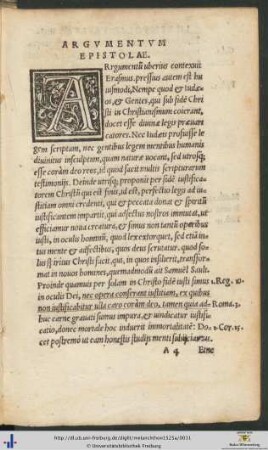 ARGVMENTVM
EPISTOLAE.
ARgumentū uberius contexuit
Erasmus, pressius autem est hu
iusmodi, Nempe quod & Iudæ-
os, & Gentes, qui sub fide Chri
sti in Christianismum coierant,
docet esse diuinæ legis præuari
catores. Nec Iudæis profuisse le
gem scriptam, nec gentibus legem mentibus humanis
diuinitus insculptam, quam naturæ uocant, sed utrosq;
esse coram deo reos, id quod facit multis scripturarum
testimonijs. Deinde utrisq; proponit per fidē iustifica-
torem Christū qui est finis, id est, perfectio legis ad iu-
stitiam omni credenti, qui & peccata donat & spiritū
iustificantem impartit, qui adfectus nostros immutat, ut
efficiamur noua creatura, & simus non tantū operibus
iusti, in oculis hominū, quod lex extorquet, sed etiā in-
tus mente & adfectibus, quos deus scrutatur, quod so-
lius est uirtus Christi facit, quæ, in quem insilierit, transfor-
mat in nouos homines, quemadmodū ait Samuel Sauli.
Proinde quamuis per solam in Christo fidē iusti simus 1. Reg. 10.
in oculis Dei, nec opera conferant iustitiam, ex quibus
non iustificabitur ulla caro coram deo, tamen quia ad- Roma.3.
huc carne grauati sumus impura, & uindicatur iustifi-
catio, donec mortale hoc induerit immortalitatē: Do- 1. Cor. 15.
cet postremò ut eam honestis studijs menti subijciamus
A 4 Eine
http://dl.ub.uni-freiburg.de/diglit/melanchthon1525a/0011
© Universitätsbibliothek Freiburg